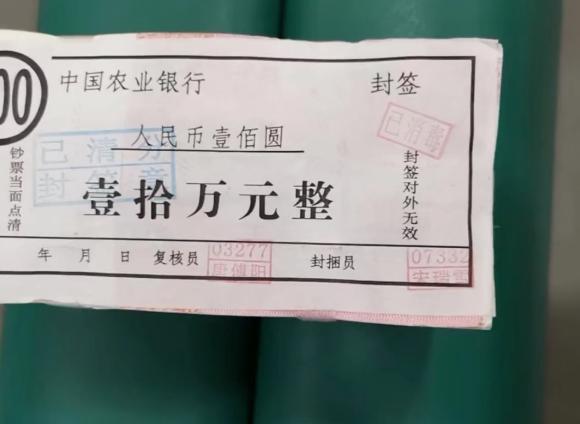 00
中国农业银行 封签
人民币壹佰圆
已消毒
已清分
封签章
壹拾万元整
钞票当面点清
封签对外无效
年 月 日 复核员 03277 封捆员 07332
唐傅阳 宋瑞雪